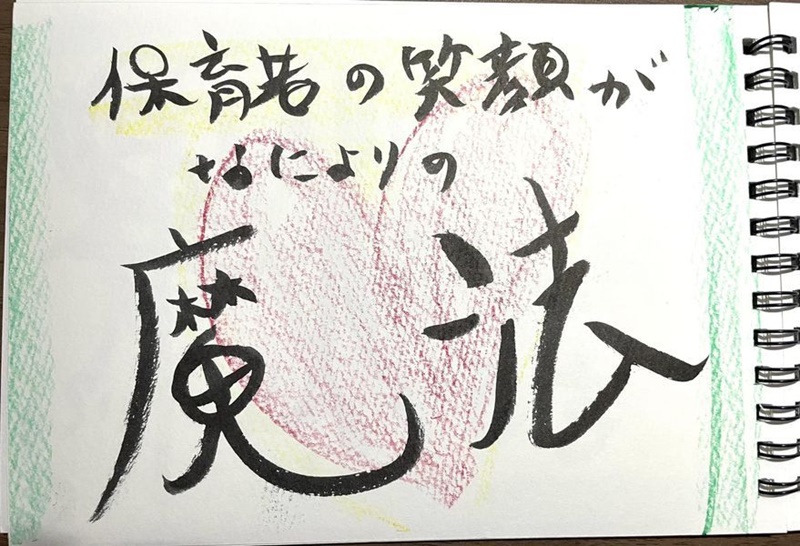 保育者の笑顔が
なによりの
魔法